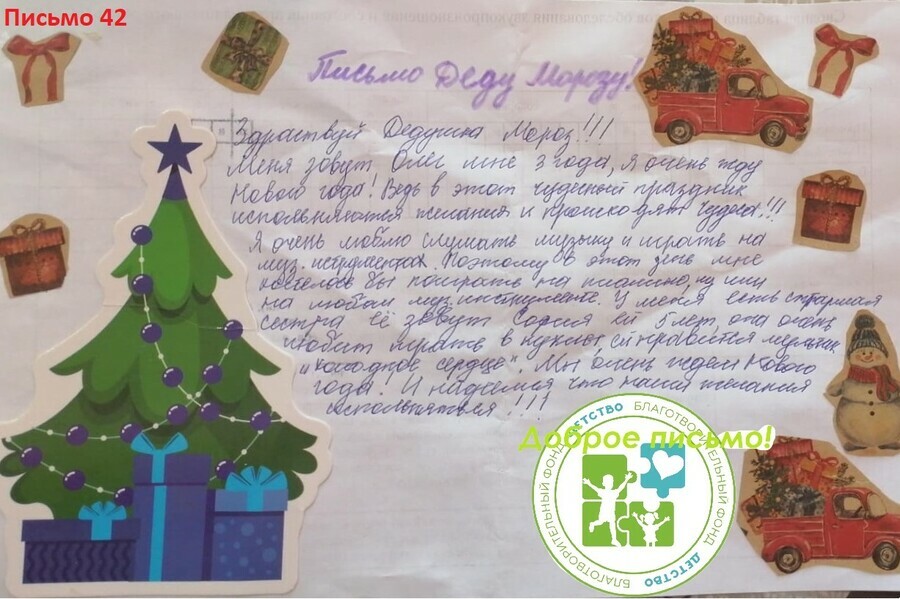 Письмо 42
Письмо Деду Морозу!
Здраствуй Дедушка Мороз!!!
Меня зовут Олег мне 3 года, я очень жду
Нового года! Ведь в этот чудесный праздник
исполняются желания и происходят чудеса!!!
Я очень люблю слушать музыку и играть на
муз. иструментах. Поэтому в этот день мне
хотелось бы поиграть на пианино, ну или
на любом муз. инструменте. У меня есть старшая
сестра её зовут София ей 5 лет, она очень
любит играть в куклы, ей нравится мультик
"Холодное сердце". Мы очень ждем Нового
года! И надеемся что наши желания
исполняться!!!
Доброе письмо!
БЛАГОТВОРИТЕЛЬНЫЙ ФОНД ДЕТСТВО БЛАГОТВОРИТЕЛЬНЫЙ ФОНД ДЕТСТВО